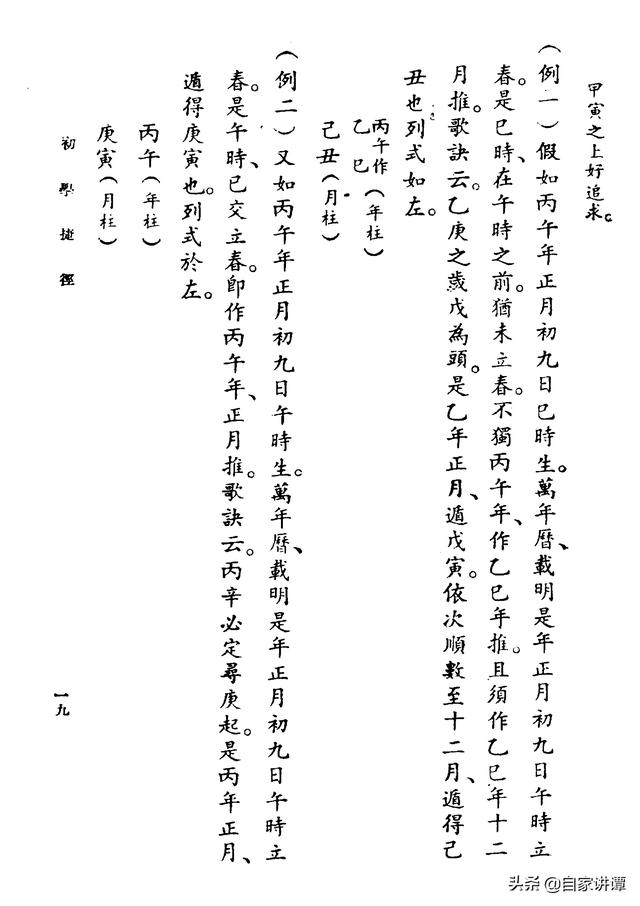 甲寅之上好追求。
（例一）假如丙午年正月初九日巳時生。萬年曆、載明是年正月初九日午時立
春。是巳時、在午時之前。猶未立春。不獨丙午年、作乙巳年推。且須作乙巳年十二
月推。歌訣云。乙庚之歲戊為頭。是乙年正月、遁戊寅。依次順數至十二月、遁得己
丑也列式如左。
丙午作
乙巳（年柱）
己丑（月柱）
（例二）又如丙午年正月初九日午時生。萬年曆、載明是年正月初九日午時立
春。是午時、已交立春。卽作丙午年、正月推。歌訣云。丙辛必定尋庚起。是丙年正月、
遁得庚寅也。列式於左。
丙午（年柱）
庚寅（月柱）
初學捷徑
一九
头条 @自家讲谭